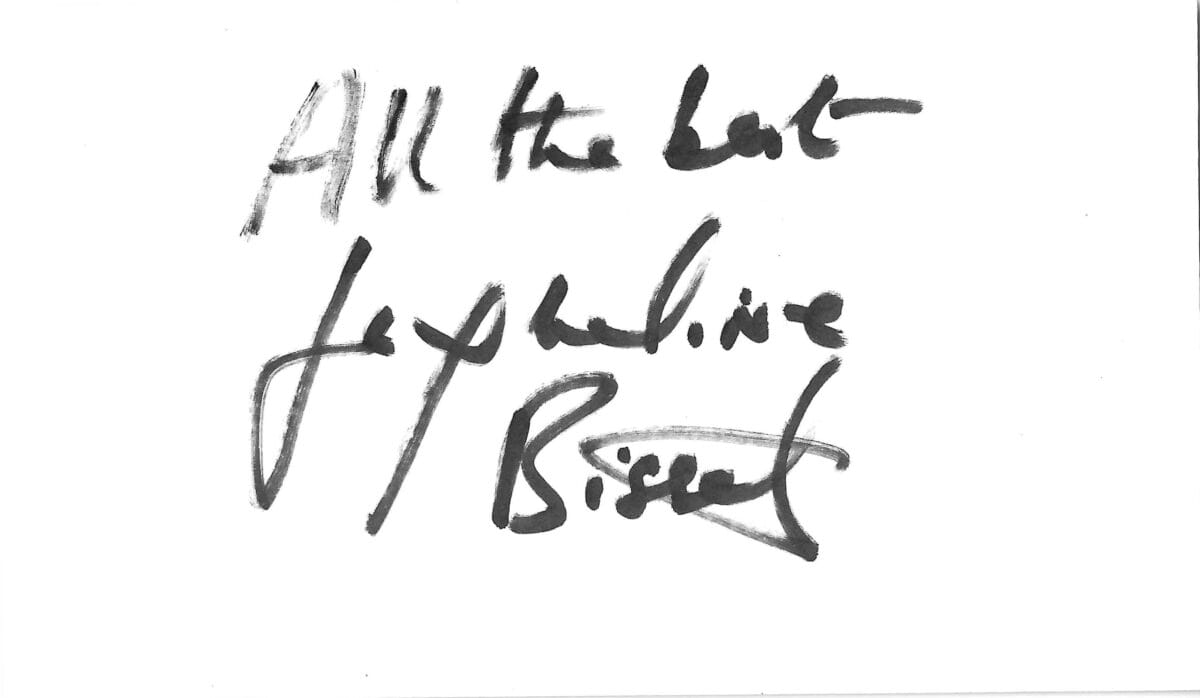 All the best
Jacqueline
Bisset